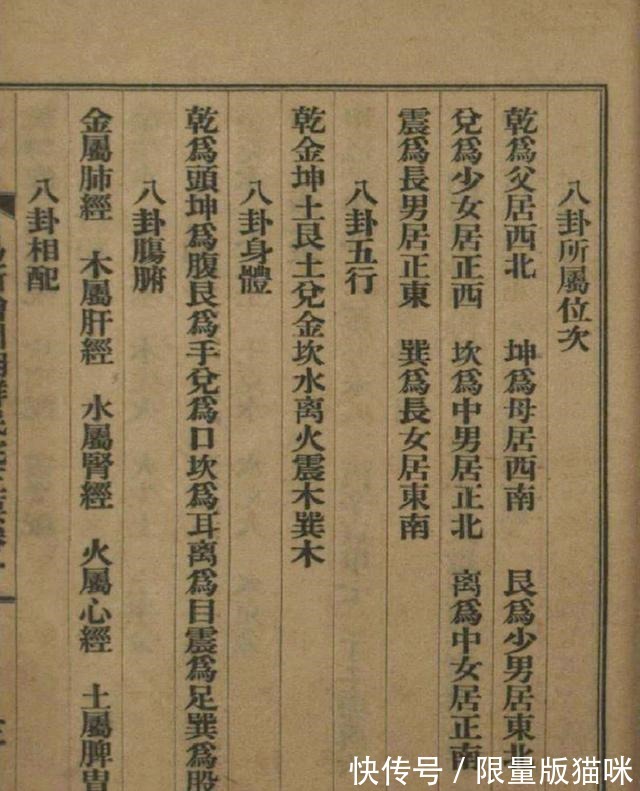 八卦所屬位次
乾爲父居西北　坤爲母居西南　艮爲少男居東北
兌爲少女居正西　坎爲中男居正北　离爲中女居正南
震爲長男居正東　巽爲長女居東南
八卦五行
乾金坤土艮土兌金坎水离火震木巽木
八卦身體
乾爲頭坤爲腹艮爲手兌爲口坎爲耳离爲目震爲足巽爲股
八卦腸腑
金屬肺經　木屬肝經　水屬腎經　火屬心經　土屬脾胃
八卦相配
快传号／限量版猫咪